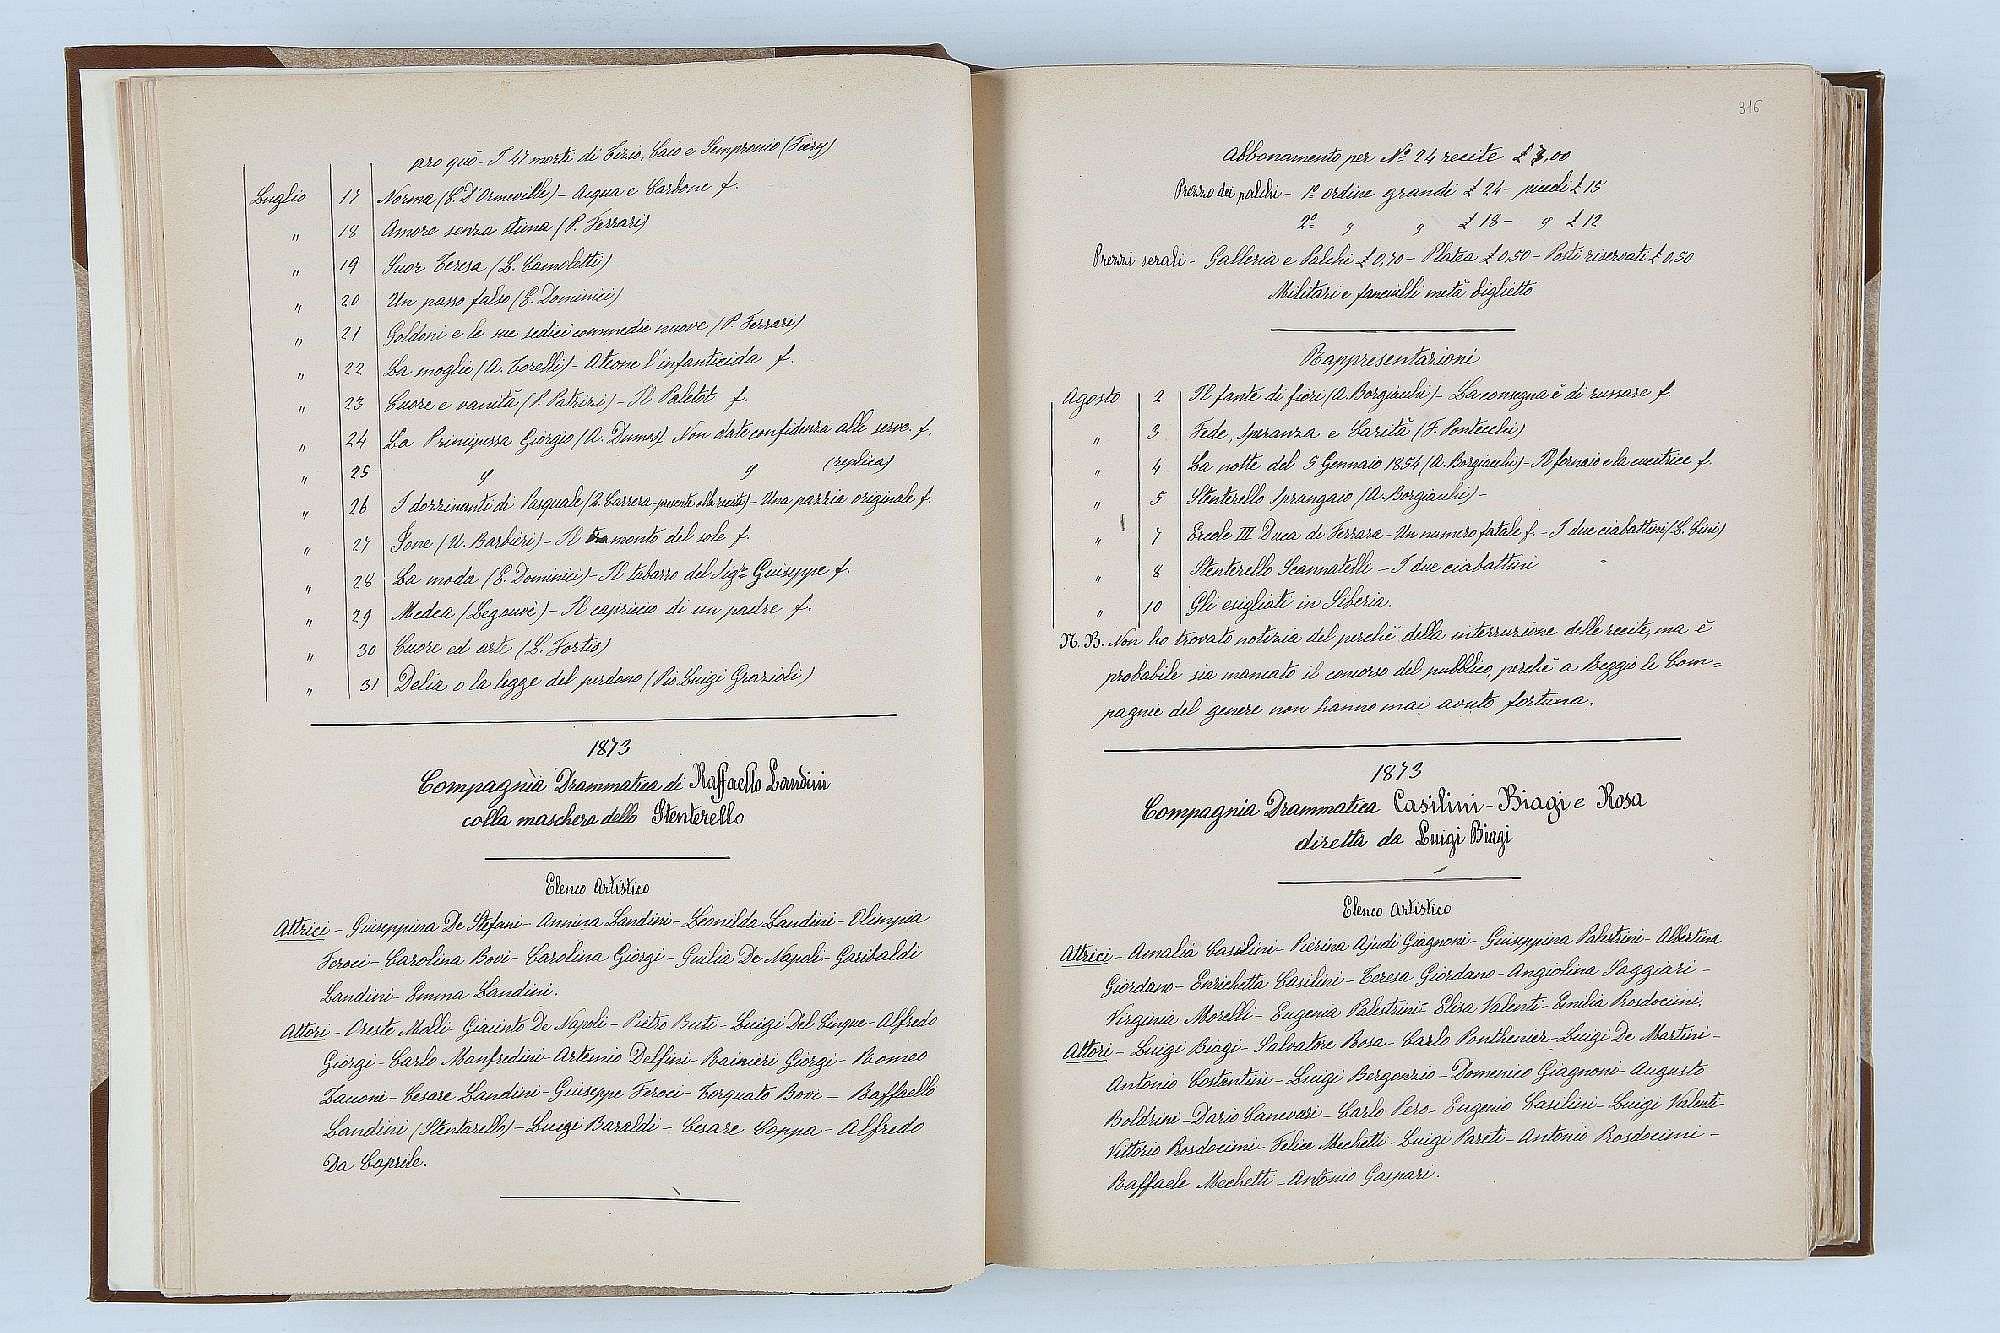 pro quo - I 47 morti di Tizio, Caio e Sempronio (Fiery)
Luglio 17 Norma (L. D'Ormeville) - Acqua e Carbone f.
" 18 Amore senza stima (P. Ferrari)
" 19 Suor Teresa (L. Camoletti)
" 20 Un passo falso (E. Dominici)
" 21 Goldoni e le sue sedici commedie nuove (P. Ferrari)
" 22 La moglie (A. Torelli) - Ateone l'infanticida f.
" 23 Cuore e vanità (P. Patrizi) - Il Paletot f.
" 24 La Principessa Giorgio (A. Dumas) Non date confidenza alle serve. f.
" 25 " " (replica)
" 26 I dozzinanti di Pasquale (V. Carrera presente alla recita) - Una pazzia originale f.
" 27 Jone (U. Barbieri) - Il tramonto del sole f.
" 28 La moda (E. Dominici) - Il tabarro del Sigr Giuseppe f.
" 29 Medea (Legouvè) - Il capriccio di un padre f.
" 30 Cuore ed arte (L. Fortis)
" 31 Delia o la legge del perdono (Pio Luigi Grazioli)
1873
Compagnia Drammatica di Raffaello Landini
colla maschera dello Stenterello
Elenco Artistico
Attrici - Giuseppina De Stefani - Annina Landini - Leonilda Landini - Olimpia
Feroci - Carolina Bovi - Carolina Giorgi - Giulia De Napoli - Garibaldi
Landini - Emma Landini.
Attori - Oreste Molli Giacinto De Napoli - Pietro Buti - Luigi Del Cinque - Alfredo
Giorgi - Carlo Manfredini - Artemio Delfini - Rainieri Giorgi - Romeo
Zanoni - Cesare Landini - Giuseppe Feroci - Torquato Bovi - Raffaello
Landini (Stentarello) - Luigi Baraldi - Cesare Coppa - Alfredo
Da Caprile.
316
Abbonamento per No 24 recite £ 7,00
Prezzo dei palchi - 1o ordine grandi £ 24 - piccoli £ 15
2o " " £ 18 - " £ 12
Prezzi serali - Galleria e Palchi £ 0,70 - Platea £ 0,50 - Posti riservati £ 0,50
Militari e fanciulli metà biglietto
Rappresentazioni
Agosto 2 Il fante di fiori (A. Borgiacchi) - La consegna è di russare f
" 3 Fede, Speranza e Carità (F. Pontecchi)
" 4 La notte del 5 Gennaio 1854 (A. Borgiacchi) - Il fornaio e la cucitrice f.
" 5 Stenterello Sprangaio (A. Borgiacchi) -
" 7 Ercole III Duca di Ferrara - Un numero fatale f. - I due ciabattini (L. Cini)
" 8 Stenterello Scannatelli - I due ciabattini
" 10 Gli esigliati in Siberia.
N.B. Non ho trovato notizia del perchè della interruzione delle recite, ma è
probabile sia mancato il concorso del pubblico, perchè a Reggio le Com=
pagnie del genere non hanno mai avuto fortuna.
1873
Compagnia Drammatica Casilini - Biagi e Rosa
diretta da Luigi Biagi
Elenco Artistico
Attrici - Amalia Casilini - Pierina Ajudi Giagnoni - Giuseppina Palestrini - Albertina
Giordano - Enrichetta Casilini - Teresa Giordano - Angiolina Saggiari -
Virginia Morelli - Eugenia Palestrini - Elisa Valenti - Emilia Bosdocimi.
Attori - Luigi Biagi - Salvatore Rosa - Carlo Ponthenier - Luigi De Martini -
Antonio Costantini - Luigi Bergonzio - Domenico Giagnoni - Augusto
Boldrini - Dario Canevari - Carlo Pero - Eugenio Casilini - Luigi Valenti -
Vittorio Bosdocimi - Felice Mechetti - Luigi Pareti - Antonio Bosdocimi -
Raffaele Mechetti - Antonio Gaspari.